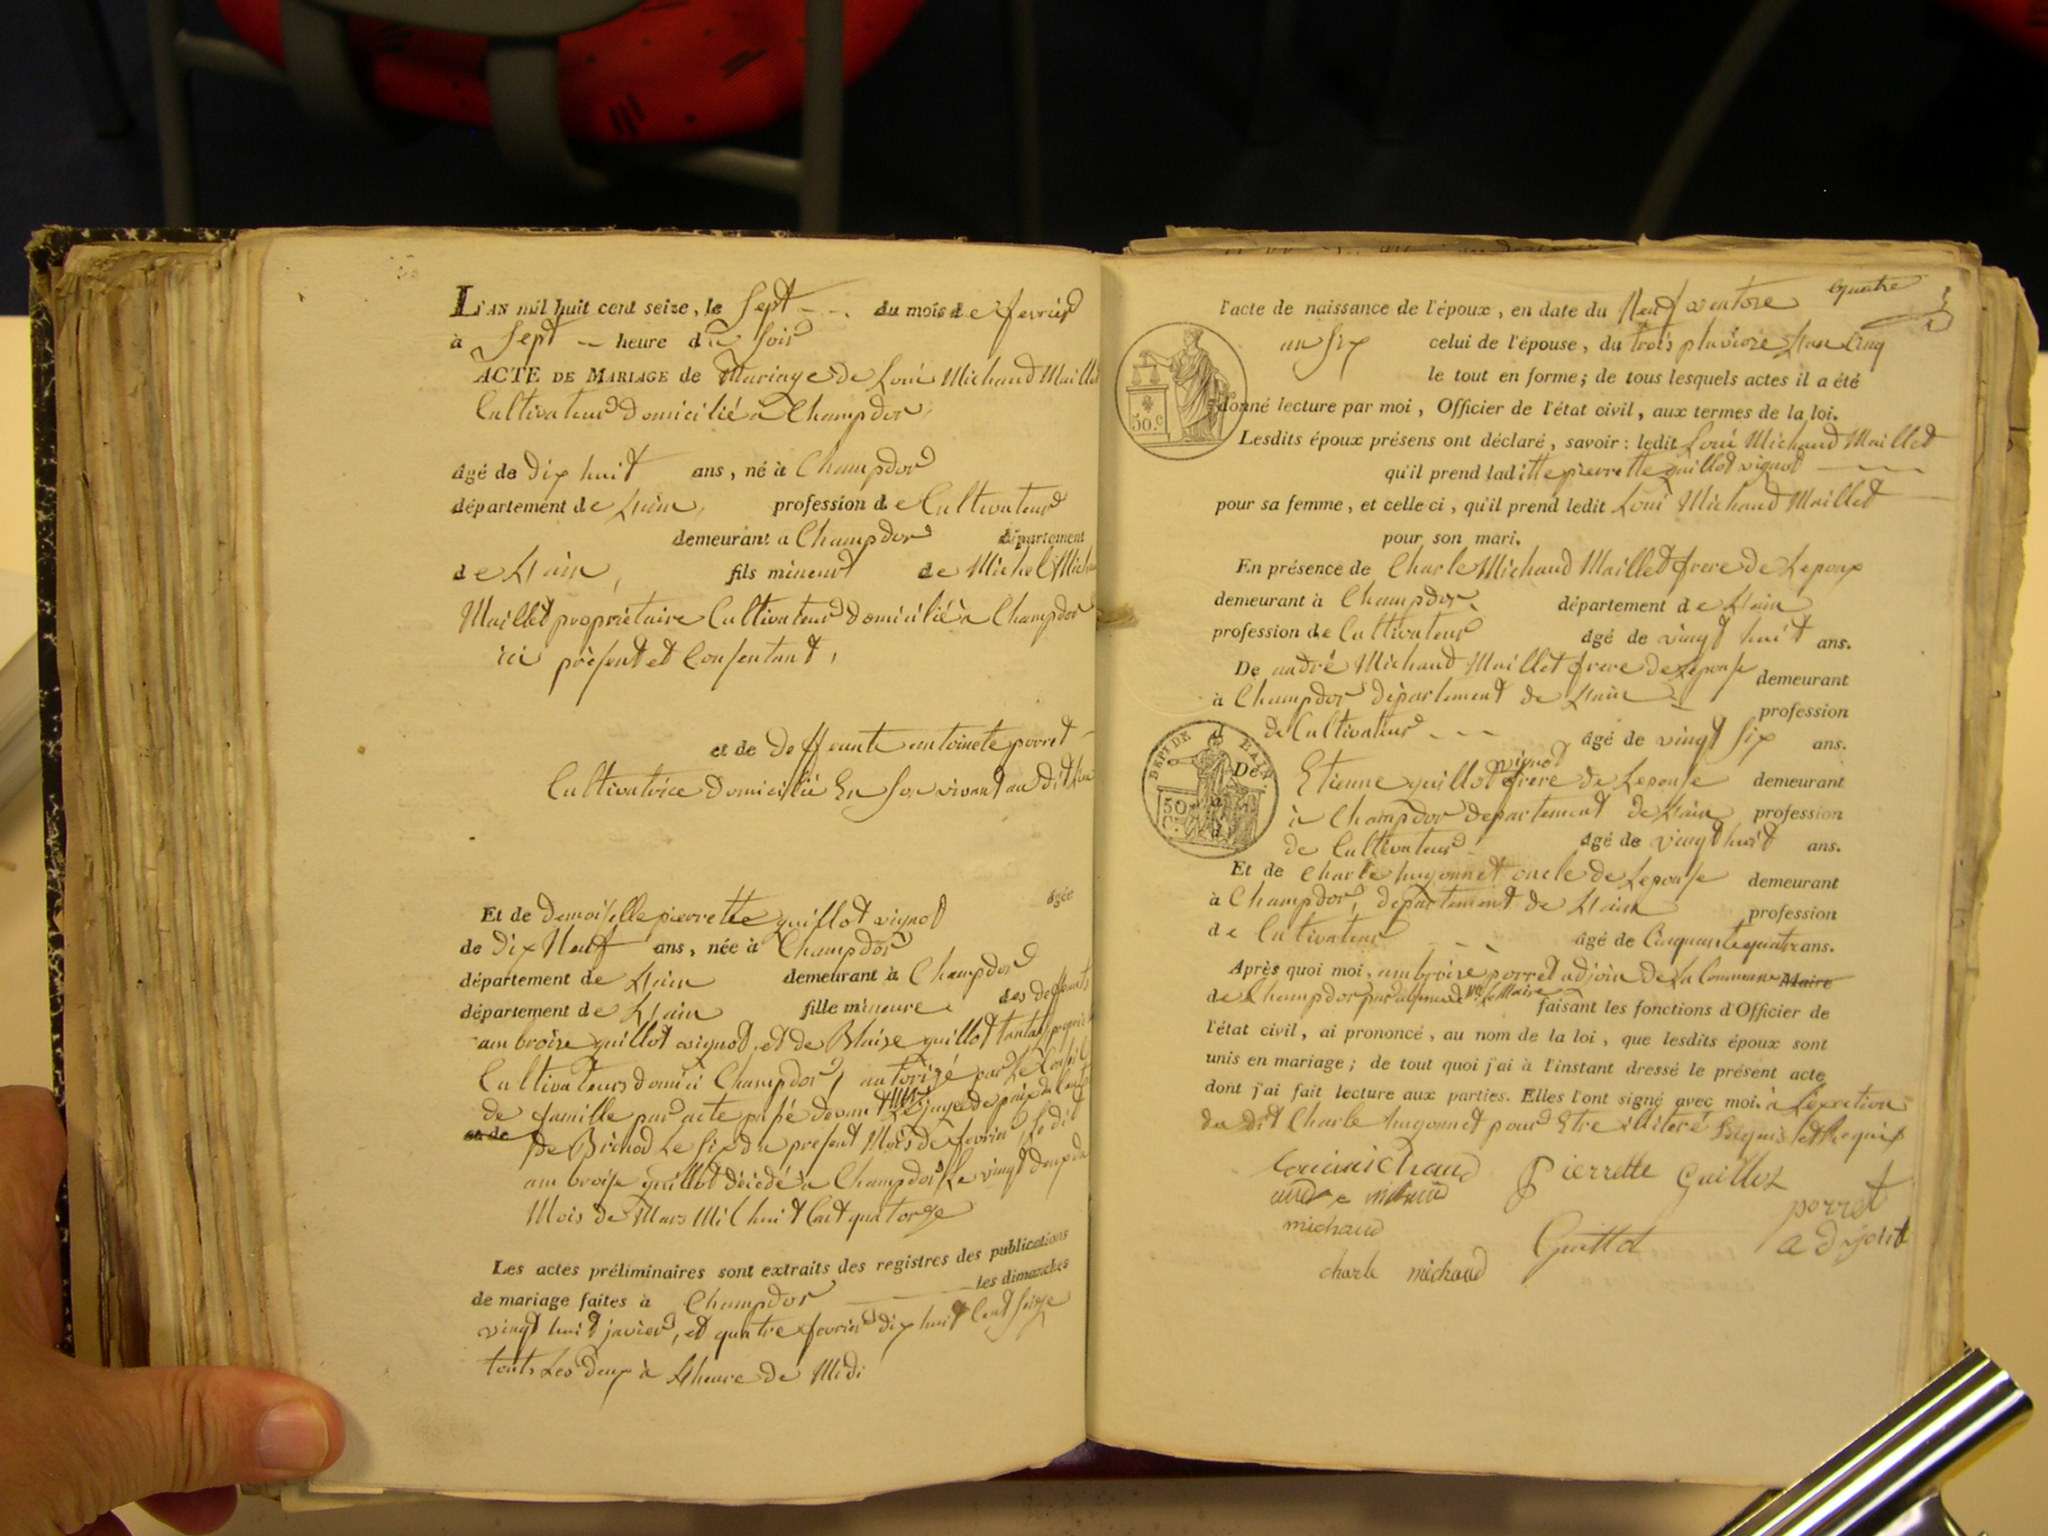 L'AN mil huit cent seize, le Sept du mois de fevrier
à Sept heure du Soir
ACTE DE MARIAGE de Mariage de Loui Michaud Maillet
Cultivateur Domicilié a Champdor,
âgé de dix huit ans, né à Champdor
département de Lain, profession de Cultivateur
demeurant a Champdor département
de Lain, fils mineur de Michel Micha
Maillet propriétaire Cultivateur Domicilié a Champdor
ici présent et Consentant,
et de deffeunte antoinete perret
Cultivatrice Domicilié En son vivant au dit lieu
Et de demoiselle pierrette guillot vignot âgée
de dix Neuf ans, née à Champdor
département de Lain demeurant à Champdor
département de Lain fille mineure des deffeunts
ambroise guillot vignot et de Blaise guillot tantas
Cultivateurs domici Champdor, autorizé par Le Conseil
de famille par acte passé devant Mr Le juge de paix du
et de De Brinod Le Six du present Mois de fevrier, Le dit
ambroise guillot décédé à Champdor Le vingt deux du
Mois de Mars Mil huit Cent quatorze
Les actes préliminaires sont extraits des registres des publications
de mariage faites à Champdor les dimanches
vingt huit javier, et quatre fevrier dix huit Cent Seize
touts Les deux à Lheure de Midi
quatre
l'acte de naissance de l'époux, en date du Neuf ventose
an Six celui de l'épouse, du trois pluviose Lan Cinq
le tout en forme; de tous lesquels actes il a été
donné lecture par moi, Officier de l'état civil, aux termes de la loi.
50.c
Lesdits époux présens ont déclaré, savoir: ledit Loui Michaud Maillet
qu'il prend laditte pierrette guillot vignot
pour sa femme, et celle ci, qu'il prend ledit Loui Michaud Maillet
pour son mari.
En présence de Charle Michaud Maillet frere de Lepoux
demeurant à Champdor, département de Lain
profession de Cultivateur âgé de vingt huit ans.
De andré Michaud Maillet frere de Lepouse demeurant
à Champdor département de Lain profession
de Cultivateur âgé de vingt six ans.
DEPT DE L'AIN
50 C.
De Etienne guillot vignot frere de Lepouse demeurant
à Champdor departement de Lain profession
de Cultivateur âgé de vingt huit ans.
Et de Charle hugonnet oncle de Lepouse demeurant
à Champdor, département de Lain profession
de Cultivateur âgé de Cinquante quatre ans.
Après quoi moi, ambroise perret adjoin de La Commune Maire
de Champdor par Mr Le Maire faisant les fonctions d'Officier de
l'état civil, ai prononcé, au nom de la loi, que lesdits époux sont
unis en mariage; de tout quoi j'ai à l'instant dressé le présent acte
dont j'ai fait lecture aux parties. Elles l'ont signé avec moi. a Lexection
du dit Charle hugonnet pour Etre illiteré Enquis et Requis
Loui michaud Pierrette Guillot
andre michaud perret
michaud Guillot adjoint
charle michaud